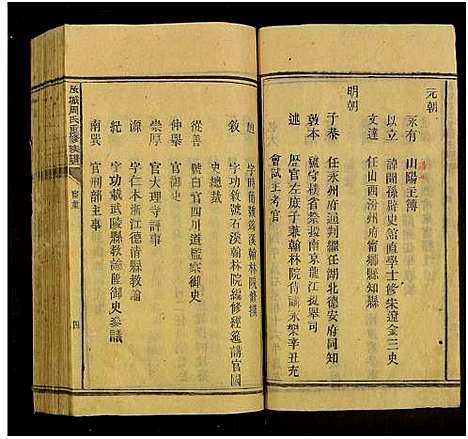 元朝
永有 山陽主簿
以立 諱聞孫辟史館直學士修朱遼金三史
文達 任山西汾州府甯鄉縣知縣
明朝
子恭 任永州府通判繼任湖北德安府同知
敦本 號守樸省祭授南京龍江提舉司
歷官左庶子兼翰林院侍讀永樂辛丑充
會試主考官
翰林院修撰
敘 字功敘號石溪翰林院編修經筵講官國
史總裁
從善 號白官四川道監察御史
仲舉 官御史
崇厚 官大理寺評事
仁本 字本源浙江德清縣教諭
紀 字功載武陵縣教諭陞御史參議
南巽 官刑部主事
汝城周氏重修族譜
四